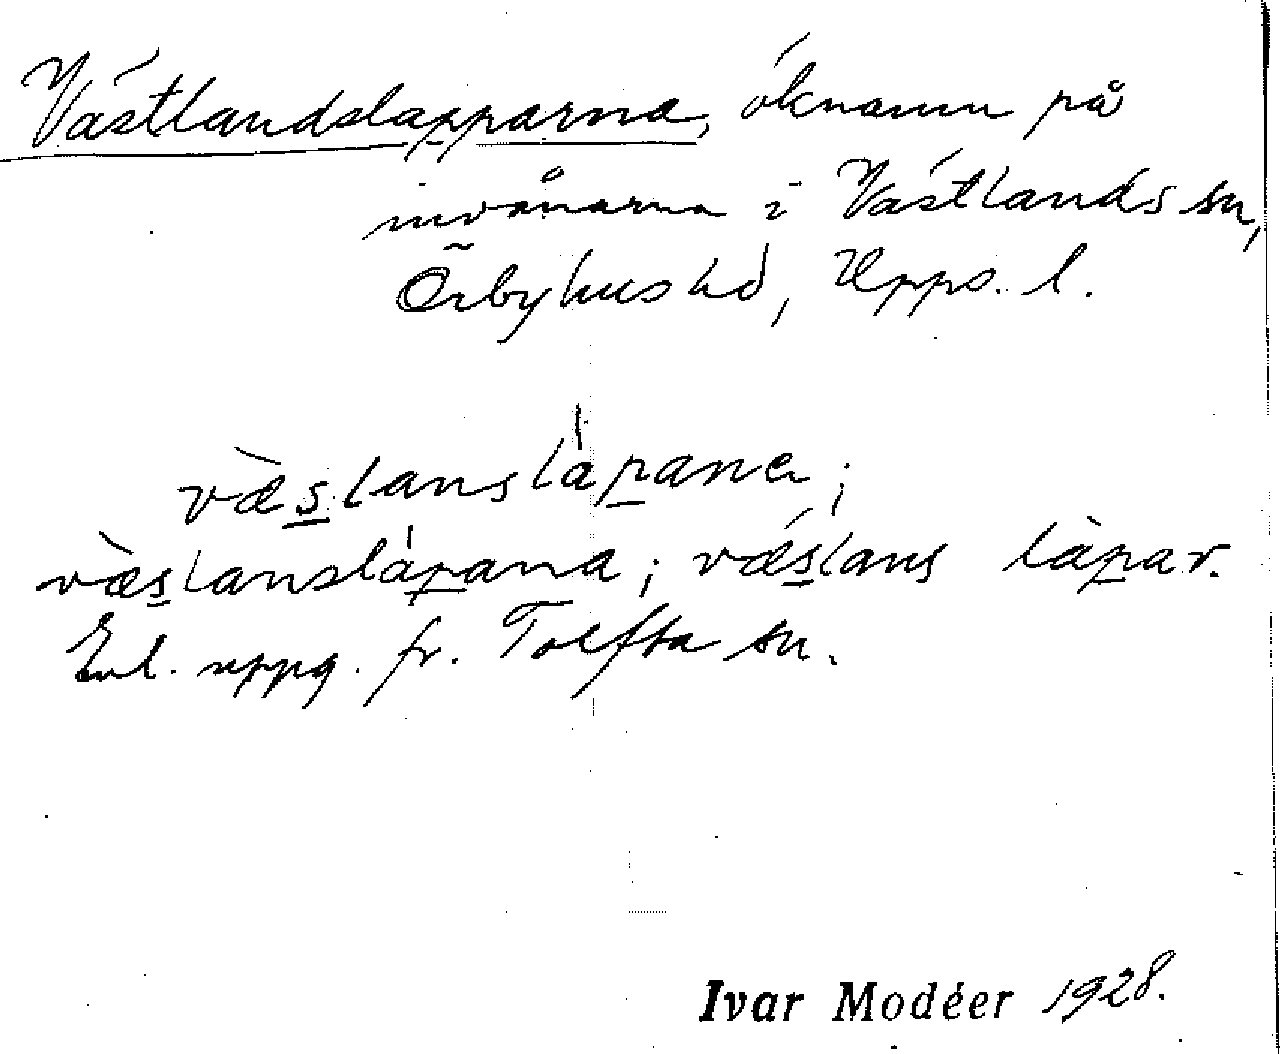 Västlandslapparna, öknamn på
invånarna i Västlands sn,
Örbyhus hd, Upps. l.
væ̀s̲lanslàp̲anα;
væ̀s̲lanslàp̲ana; vǽs̲lans làp̲ar.
Enl. uppg. fr. Tolfta sn.
Ivar Modéer 1928.